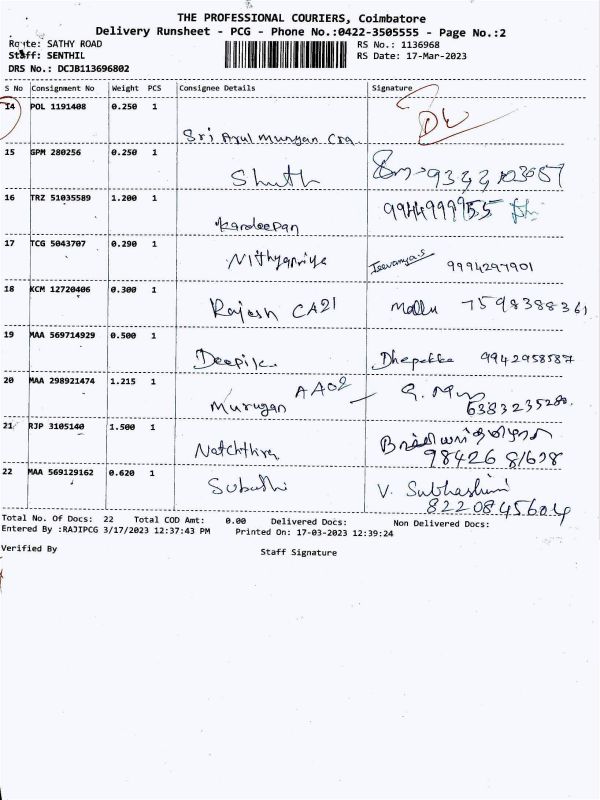 THE PROFESSIONAL COURIERS, Coimbatore
Delivery Runsheet - PCG - Phone No.:0422-3505555 - Page No.:2
Route: SATHY ROAD
RS No.: 1136968
Staff: SENTHIL
RS Date: 17-Mar-2023
DRS No.: DCJB113696802
S No Consignment No Weight PCS Consignee Details Signature
14 POL 1191408 0.250 1
Sri Arul Murugan
15 GPM 280256 0.250 1
16 TRZ 51035589 1.200 1
Kardeepan
17 TCG 5043707 0.290 1
Nithyapriya 9994297901
18 KCM 12720406 0.300 1
Rajesh CA21 Mallu 7598388361
19 MAA 569714929 0.500 1
Deepika Dhepekka 9942958587
20 MAA 298921474 1.215 1
Murugan AA02 6383235280.
21 RJP 3105140 1.500 1
Natchthra 98426 81628
22 MAA 569129162 0.620 1
Subashi V. Subhashini
8220845604
Total No. Of Docs: 22 Total COD Amt: 0.00 Delivered Docs: Non Delivered Docs:
Entered By :RAJIPCG 3/17/2023 12:37:43 PM Printed On: 17-03-2023 12:39:24
Verified By Staff Signature